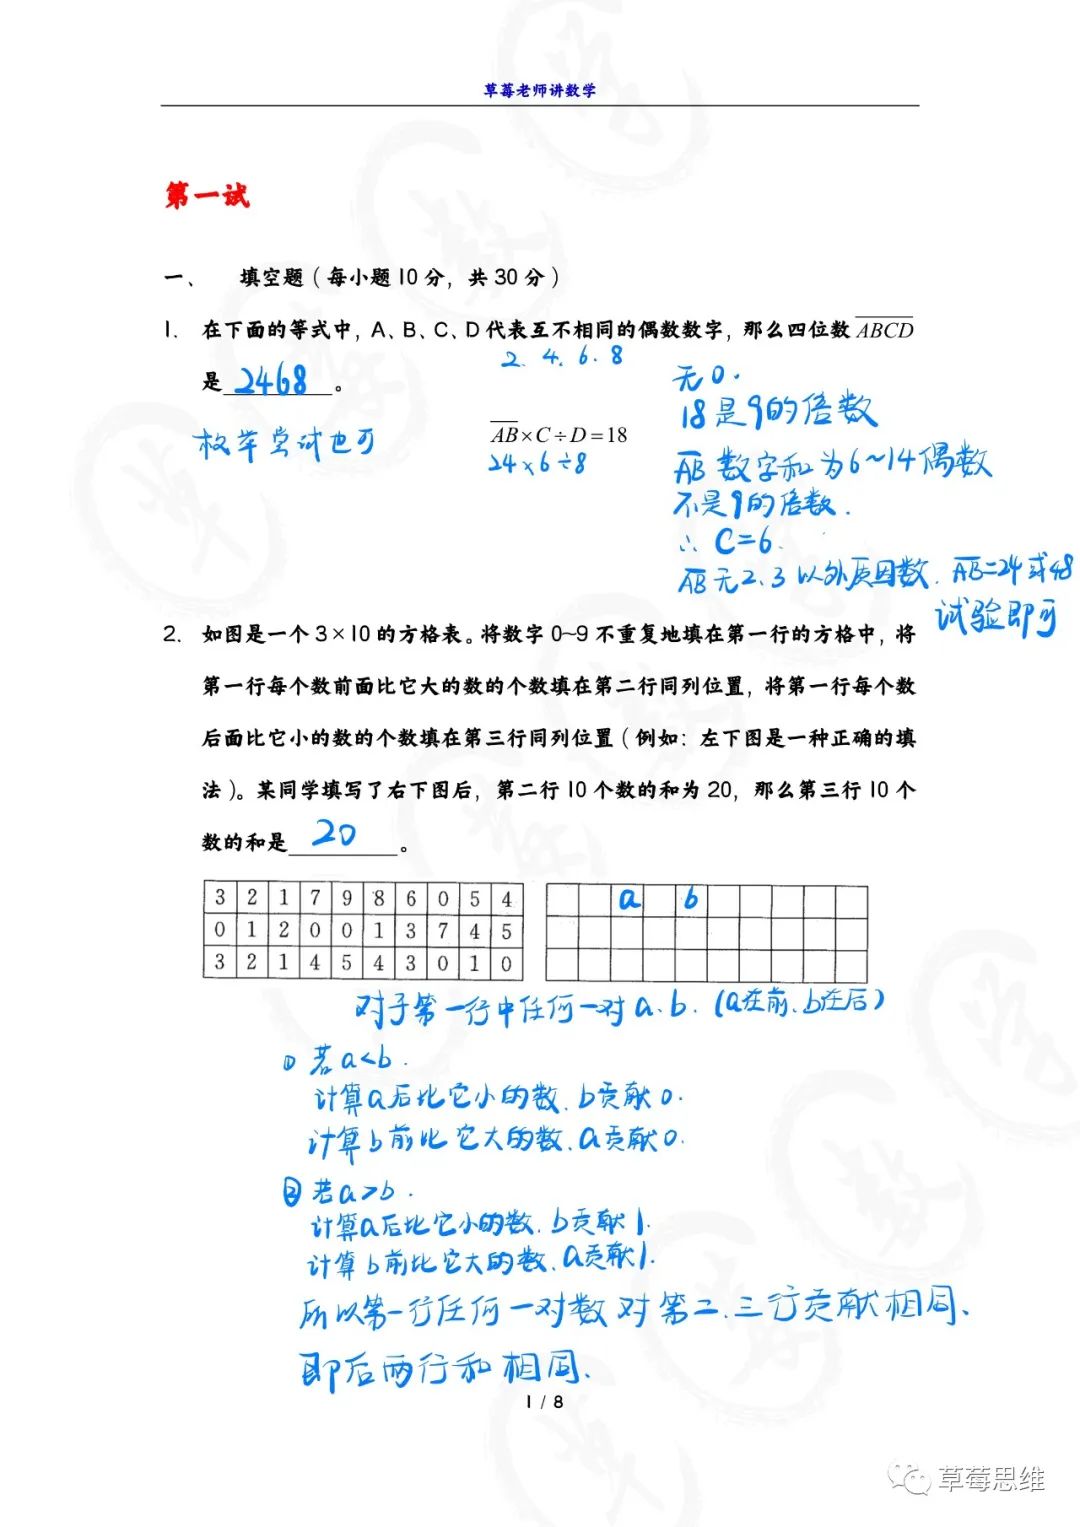 草莓老师讲数学
第一试
一、 填空题（每小题10分，共30分）
1. 在下面的等式中，A、B、C、D代表互不相同的偶数数字，那么四位数ABCD
2. 4. 6. 8
是 2468 。
无0.
18是9的倍数
枚举尝试也可
AB×C÷D=18
24×6÷8
AB数字和为6~14偶数
不是9的倍数.
∴ C=6.
AB无2、3以外质因数. AB=24或48
试验即可
2. 如图是一个3×10的方格表。将数字0~9不重复地填在第一行的方格中，将
第一行每个数前面比它大的数的个数填在第二行同列位置，将第一行每个数
后面比它小的数的个数填在第三行同列位置（例如：左下图是一种正确的填
法）。某同学填写了右下图后，第二行10个数的和为20，那么第三行10个
数的和是 20 。
3 2 1 7 9 8 6 0 5 4 a b
0 1 2 0 0 1 3 7 4 5
3 2 1 4 5 4 3 0 1 0
对于第一行中任何一对a、b.（a在前、b在后）
① 若a<b.
计算a后比它小的数、b贡献0.
计算b前比它大的数、a贡献0.
② 若a>b.
计算a后比它小的数、b贡献1.
计算b前比它大的数、a贡献1.
所以第一行任何一对数对第二、三行贡献相同、
即后两行和相同、
1 / 8
草莓思维